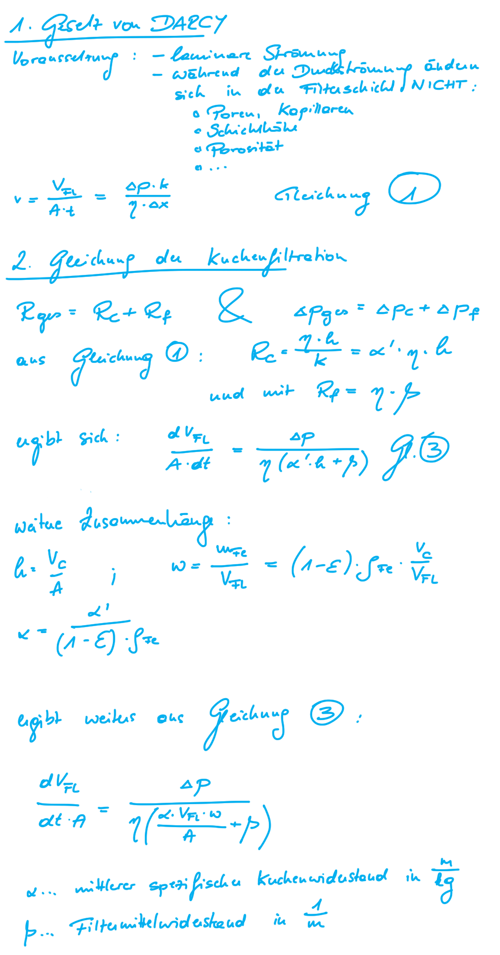 1. Gesetz von DARCY
Voraussetzung : – laminare Strömung
– während der Durchströmung ändern
sich in der Filterschicht NICHT:
o Poren, Kapillaren
o Schichthöhe
o Porosität
o ...
v = V_FL / (A·t) = (Δp·k) / (η·Δx) Gleichung ①
2. Gleichung der Kuchenfiltration
R_ges = R_c + R_f & Δp_ges = Δp_c + Δp_f
aus Gleichung ① : R_c = (η·h) / k = α'·η·h
und mit R_f = η·β
ergibt sich : dV_FL / (A·dt) = Δp / (η(α'·h + β)) Gl. ③
weitere Zusammenhänge :
h = V_c / A ; w = m_Fe / V_FL = (1-ε)·ρ_Fe · V_c / V_FL
α = α' / ((1-ε)·ρ_Fe)
ergibt weiters aus Gleichung ③ :
dV_FL / (dt·A) = Δp / (η((α·V_FL·w) / A + β))
α... mittlerer spezifischer Kuchenwiderstand in m/kg
β... Filtermittelwiderstand in 1/m